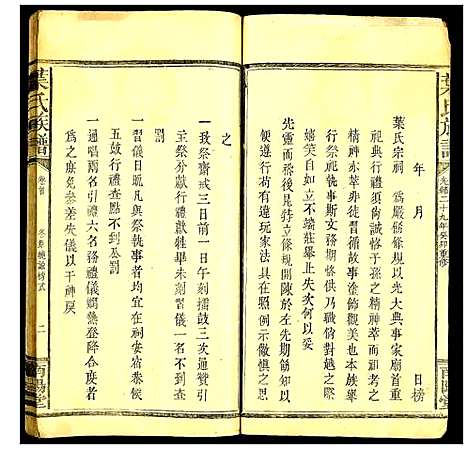 葉氏族譜
光緒二十九年癸卯重修
南陽堂
年 月 日榜
葉氏宗祠 為嚴飭條規以光大典事家廟首重
祀典行禮須尚誠恪予孫之精神而祖考之
來享非徒飾故事塗飾觀美也本族舉
行祭祀執事斯文務期名乃職倘對越之
嬉笑自如立不端莊舉止失次何以妥
先靈而務後昆特立條規開陳於左先期飭知
臨期如有違玩家法具在照例示儆慎之思
之
一致祭齋戒三日前一日午刻擂鼓三次通贊引
主祭分獻行禮獻牲畢未刻習儀一名不到查
罰
一習儀日凡與祭執事者均宜在祠安宿恭候
五鼓行禮查點不到名罰
一通唱兩名引禮六名務禮儀嫻熟登降合度者
為之庶免參差失儀以干神戾
葉氏族譜
卷首
冬祭曉諭榜式
二
南陽堂